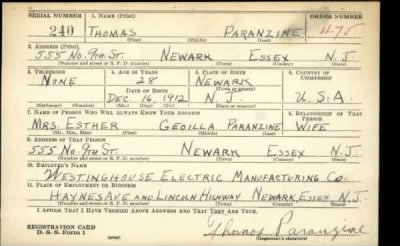 SERIAL NUMBER 1. NAME (Print) ORDER NUMBER
240 THOMAS PARANZINE 475
(First) (Middle) (Last)
2. ADDRESS (Print)
555 NO. 9TH ST. NEWARK ESSEX N.J.
(Number and street or R. F. D. number) (Town) (County) (State)
3. TELEPHONE 4. AGE IN YEARS 5. PLACE OF BIRTH 6. COUNTRY OF CITIZENSHIP
NONE 28 NEWARK
DATE OF BIRTH (Town or county)
DEC. 16, 1912 N.J. U.S.A.
(Exchange) (Number) (Mo.) (Day) (Yr.) (State or country)
7. NAME OF PERSON WHO WILL ALWAYS KNOW YOUR ADDRESS 8. RELATIONSHIP OF THAT PERSON
MRS. ESTHER PARANZINE WIFE
(Mr., Mrs., Miss) (First) (Middle) (Last)
9. ADDRESS OF THAT PERSON
555 NO. 9TH ST. NEWARK ESSEX N.J.
(Number and street or R. F. D. number) (Town) (County) (State)
10. EMPLOYER'S NAME
WESTINGHOUSE ELECTRIC MANUFACTURING CO.
11. PLACE OF EMPLOYMENT OR BUSINESS
HAYNES AVE AND LINCOLN HIGHWAY NEWARK, ESSEX N.J.
(Number and street or R. F. D. number) (Town) (County) (State)
I AFFIRM THAT I HAVE VERIFIED ABOVE ANSWERS AND THAT THEY ARE TRUE.
REGISTRATION CARD
D. S. S. Form 1 Thomas Paranzine
(Registrant's signature)